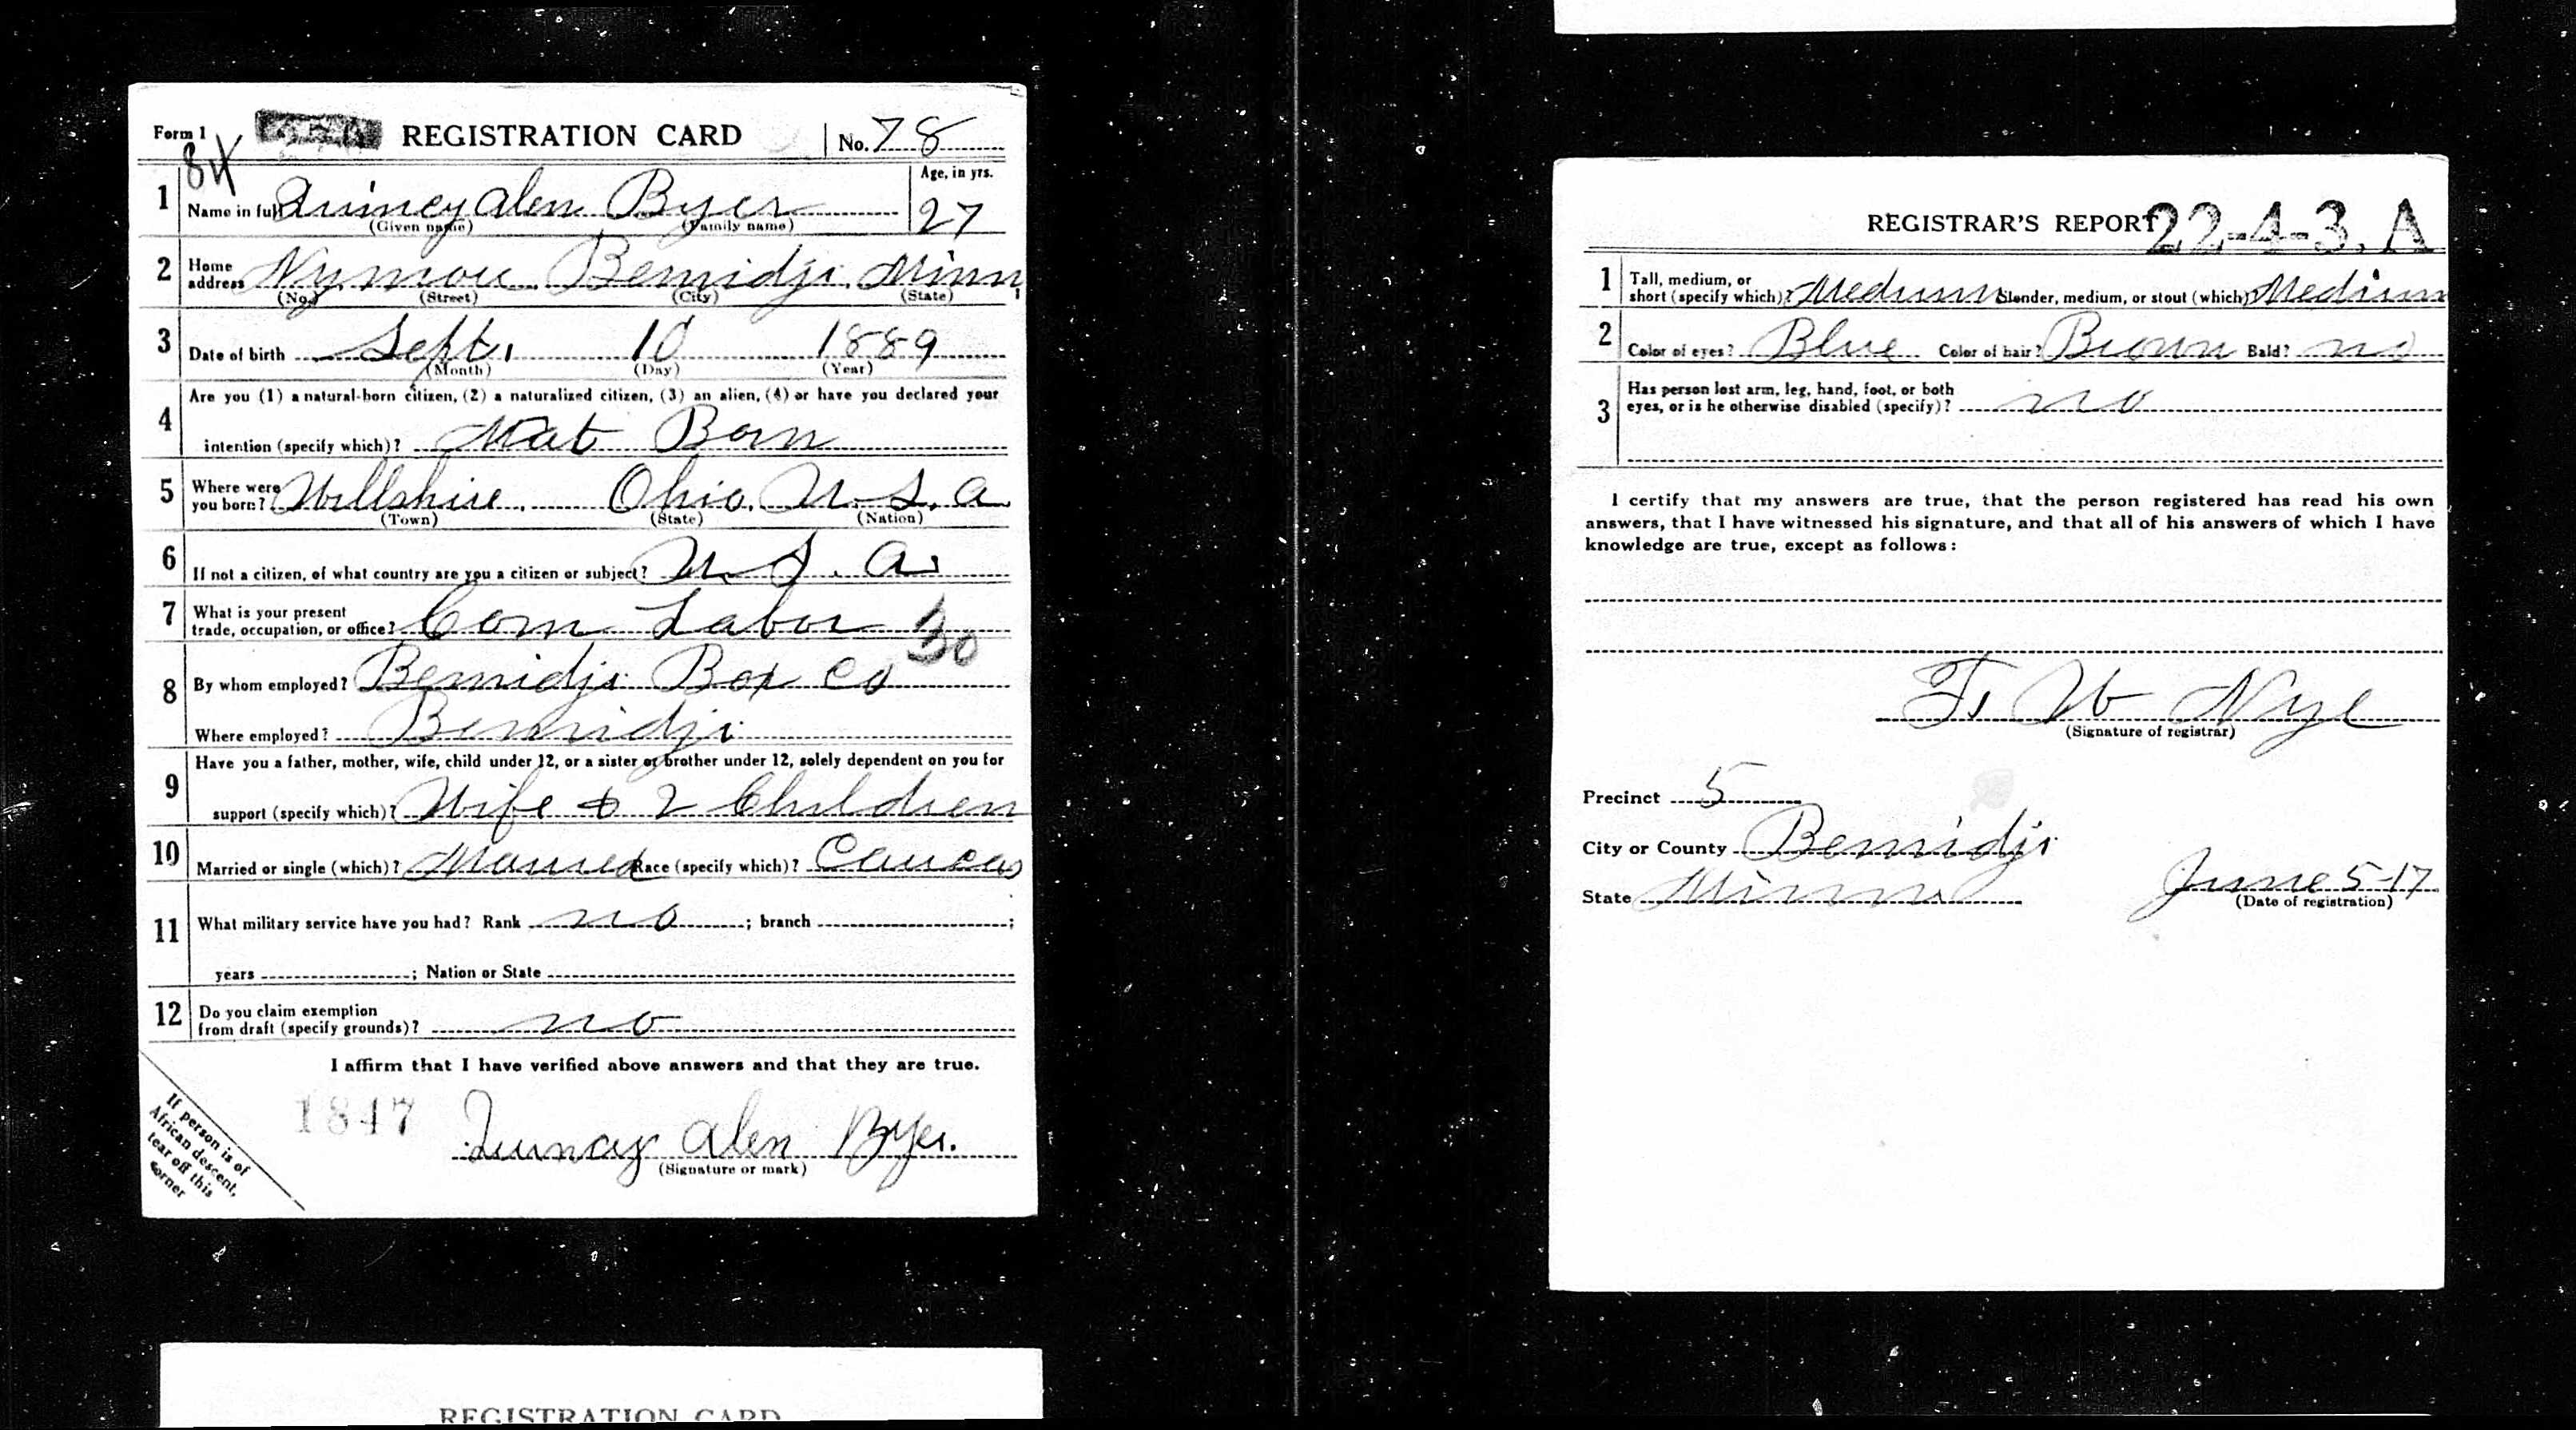 Form 1 REGISTRATION CARD No. 78
84
1 Name in full Quincy Alen Byer Age, in yrs. 27
(Given name) (Family name)
2 Home address Nymore Bemidji Minn
(No.) (Street) (City) (State)
3 Date of birth Sept. 10 1889
(Month) (Day) (Year)
4 Are you (1) a natural-born citizen, (2) a naturalized citizen, (3) an alien, (4) or have you declared your
intention (specify which)? Nat Born
5 Where were you born? Willshire. Ohio. U.S.A
(Town) (State) (Nation)
6 If not a citizen, of what country are you a citizen or subject? U.S.A.
7 What is your present
trade, occupation, or office? Com Labor 30
8 By whom employed? Bemidji Box Co
Where employed? Bemidji
9 Have you a father, mother, wife, child under 12, or a sister or brother under 12, solely dependent on you for
support (specify which)? Wife & 2 Children
10 Married or single (which)? Married Race (specify which)? Caucas
11 What military service have you had? Rank no ; branch ;
years ; Nation or State
12 Do you claim exemption
from draft (specify grounds)? no
I affirm that I have verified above answers and that they are true.
1847 Quincy Alen Byer.
(Signature or mark)
If person is of
African descent,
tear off this
corner
REGISTRATION CARD
REGISTRAR'S REPORT 22-4-3. A
1 Tall, medium, or
short (specify which)? Medium Slender, medium, or stout (which)? Medium
2 Color of eyes? Blue Color of hair? Brown Bald? no
3 Has person lost arm, leg, hand, foot, or both
eyes, or is he otherwise disabled (specify)? no
I certify that my answers are true, that the person registered has read his own
answers, that I have witnessed his signature, and that all of his answers of which I have
knowledge are true, except as follows:
F. W Nye
(Signature of registrar)
Precinct 5
City or County Bemidji
State Minn June 5-17
(Date of registration)